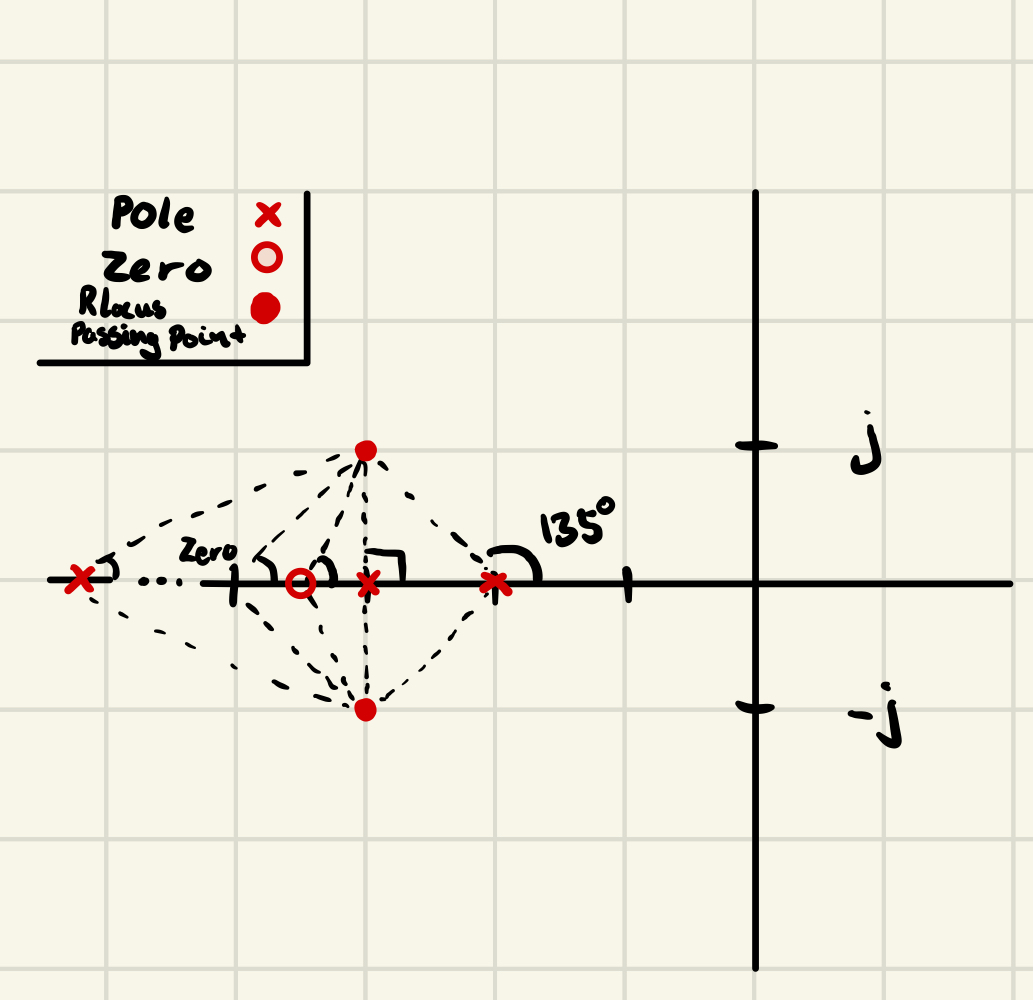 Pole
Zero
RLocus
Passing Point
j
135°
Zero
-j